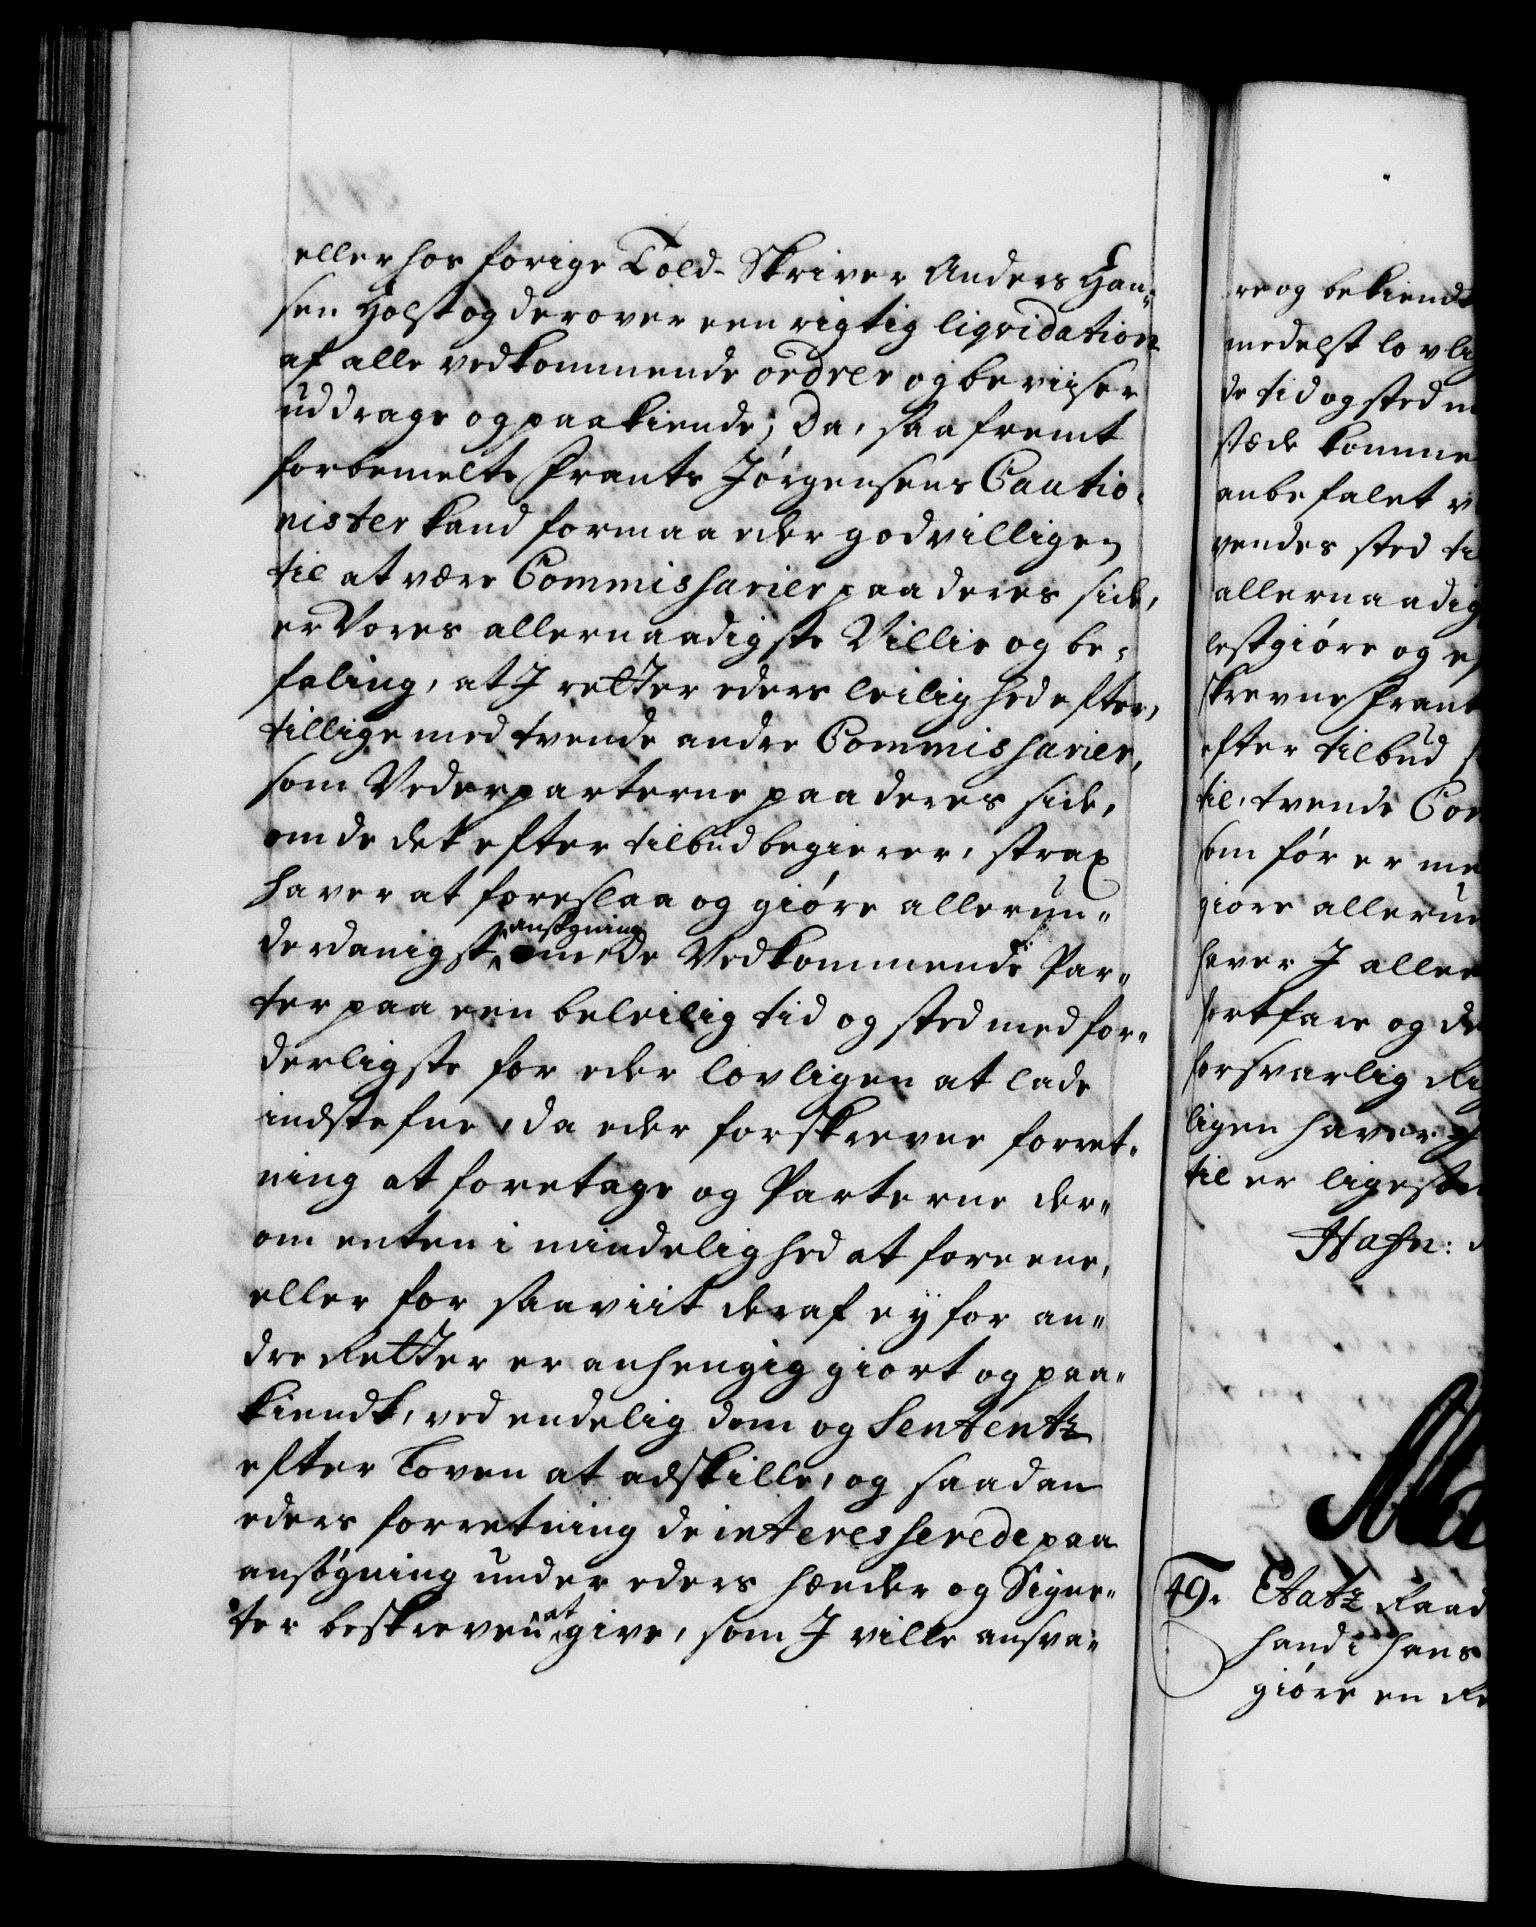 eller hos forige Told-Skriver Anders Han-
sen Holst og derover een rigtig liqvidation
af alle vedkommende ordrer og beviiser
uddrage og paakiende; Da, saafremt
forbemelte Frants Jørgensens Cautio-
nister kand formaa eder godvilligen
til at være Commissarier paa deres side,
er Vores allernaadigste Villie og be-
faling, at I retter eders leilighed efter,
tillige med tvende andre Commissarier,
som Vederparterne paa deres side,
om de det efter tilbud begierer, strax
haver at foreslaa og giøre allerun-
derdanigst ansøgning om, de Vedkommende Par-
ter paa een beleilig tid og sted med for-
derligste for eder lovligen at lade
indstefne, da eder forskrevne forret-
ning at foretage og Parterne der-
om enten i mindelighed at foreene,
eller for saaviit deraf ey for an-
dre Retter er anhengig giort og paa-
kiendt, ved endelig dom og Sententz
efter Loven at adskille, og saadan
eders forretning de interesserede paa
ansøgning under eders hænder og Signe-
ter beskreven at give, som I ville ansva-
re og bekiendt
medelst lovlig
de tid og sted
stæde komme
anbefalet
vendes sted
allernaadig
lestgiøre og
skrevne Frant
efter tilbud
til, tvende
som før er
giøre allerun
haver I aller
fortfare og
forsvarlig
ligen haver
til er ligesom
Hafn:
49. Etatz Raad
hand i hans
giøre en